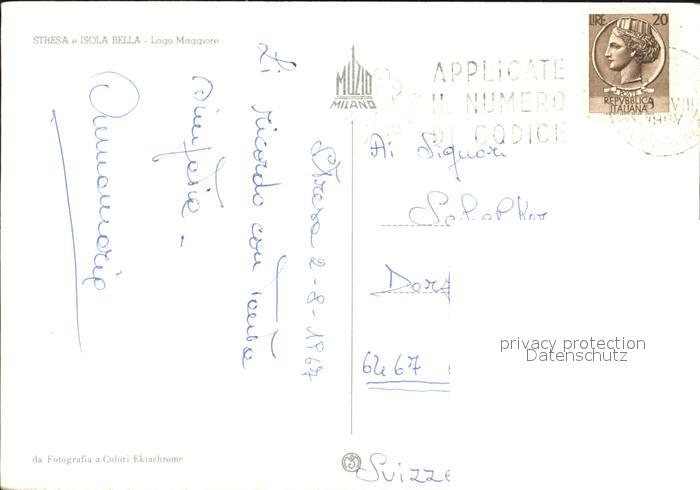 STRESA e ISOLA BELLA - Lago Maggiore
Stresa 2-8-1967
Vi ricordo con tanta
simpatia -
Annamaria
da Fotografia a Colori Ektachrome
MUZIO
MILANO
APPLICATE
IL NUMERO
DI CODICE
LIRE 20
POSTE
REPVBBLICA
ITALIANA
1967
Ai Signori
6467
Svizze
privacy protection
Datenschutz